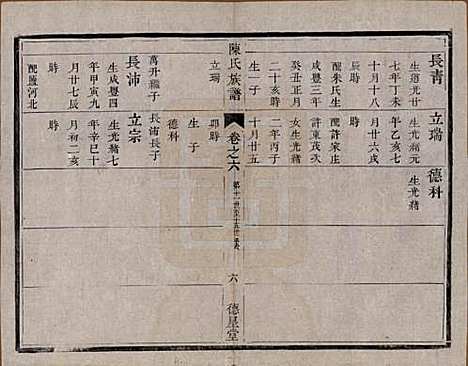 長青
生道光廿
七年丁未
十月十八
辰時
配朱氏生
咸豐三年
癸丑正月
二十亥時
生一子
立瑞
立瑞
生光緒元
年乙亥七
月廿六戌
時
配許家庄
許東茂次
女生光緒
二年丙子
十月廿五
卯時
生子
德科
德科
生光緒
陳氏族譜
卷之六
六
德星堂
萬升繼子
長沛
生咸豐四
年甲寅九
月廿七辰
時
配鹽河北
長浦長子
立宗
生光緒七
年辛巳十
月初二亥
時